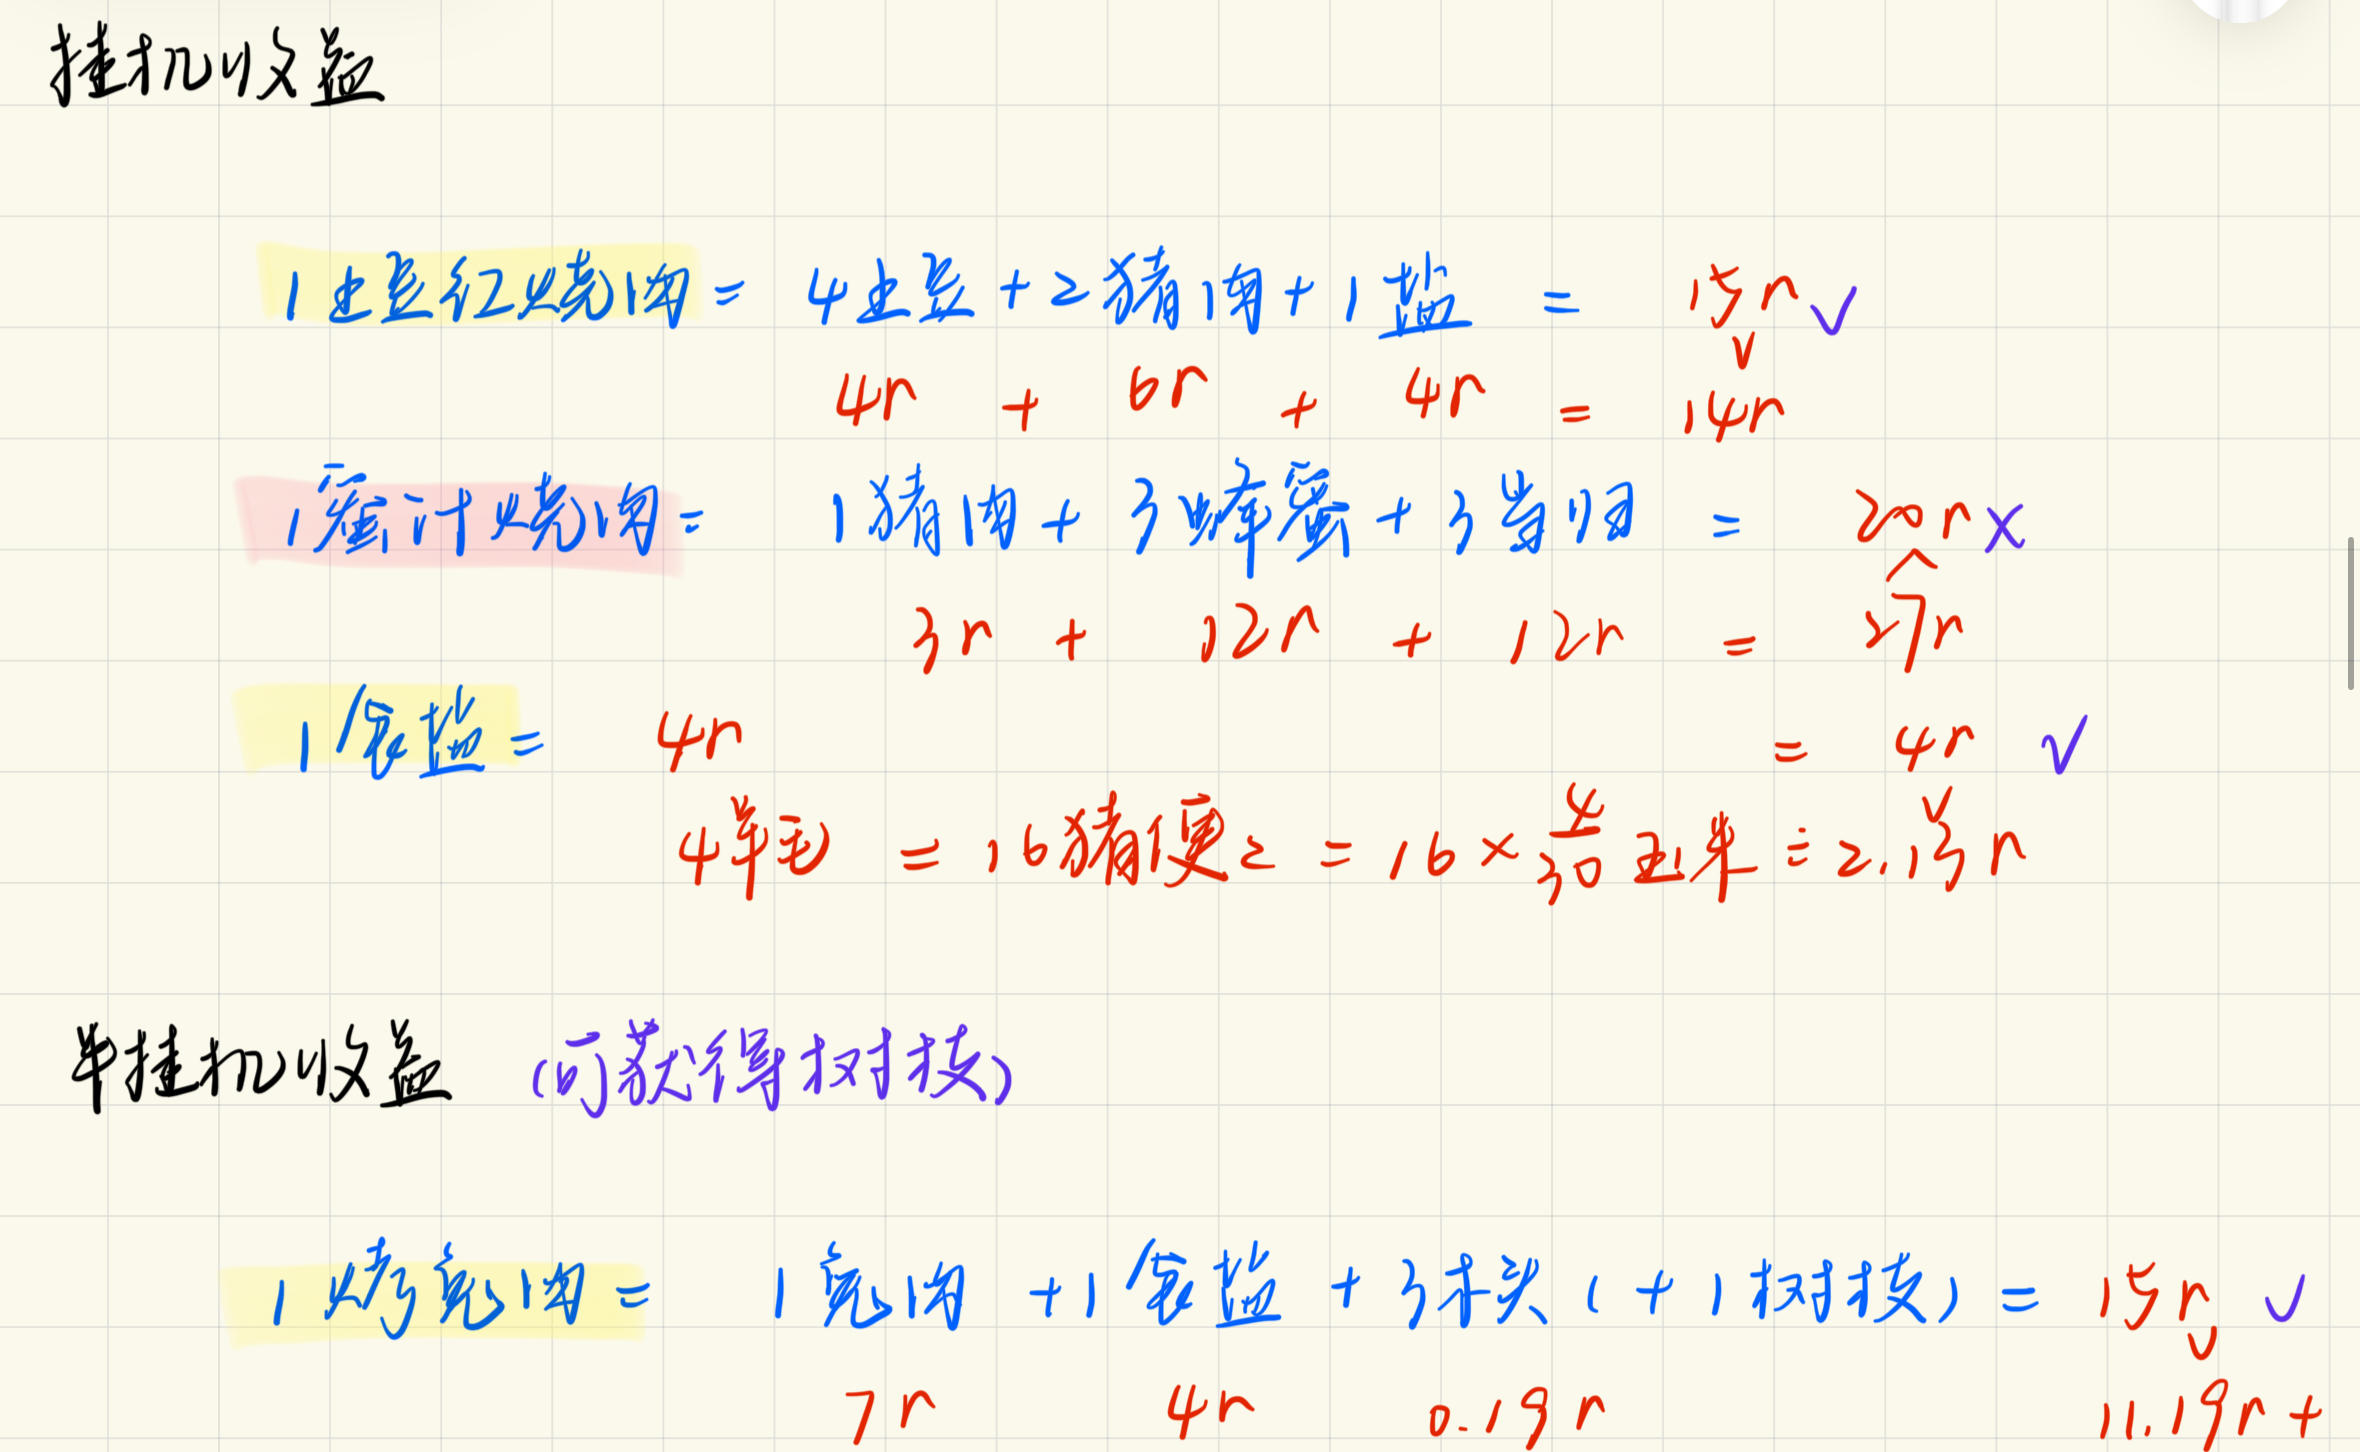 挂机收益
1土豆红烧肉 = 4土豆 + 2猪肉 + 1盐 = 15r ✓
∨
4r + 6r + 4r = 14r
1蜜汁烧肉 = 1猪肉 + 3蜂蜜 + 3当归 = 20r ×
∧
3r + 12r + 12r = 27r
1食盐 = 4r = 4r ✓
∨
4羊毛 = 16猪便2 = 16 × 4/30 玉米 ÷ 2.13r
半挂机收益 (可获得树枝)
1烤兔肉 = 1兔肉 + 1食盐 + 3木头 ( + 1树枝 ) = 15r ✓
∨
7r 4r 0.19r 11.19r +